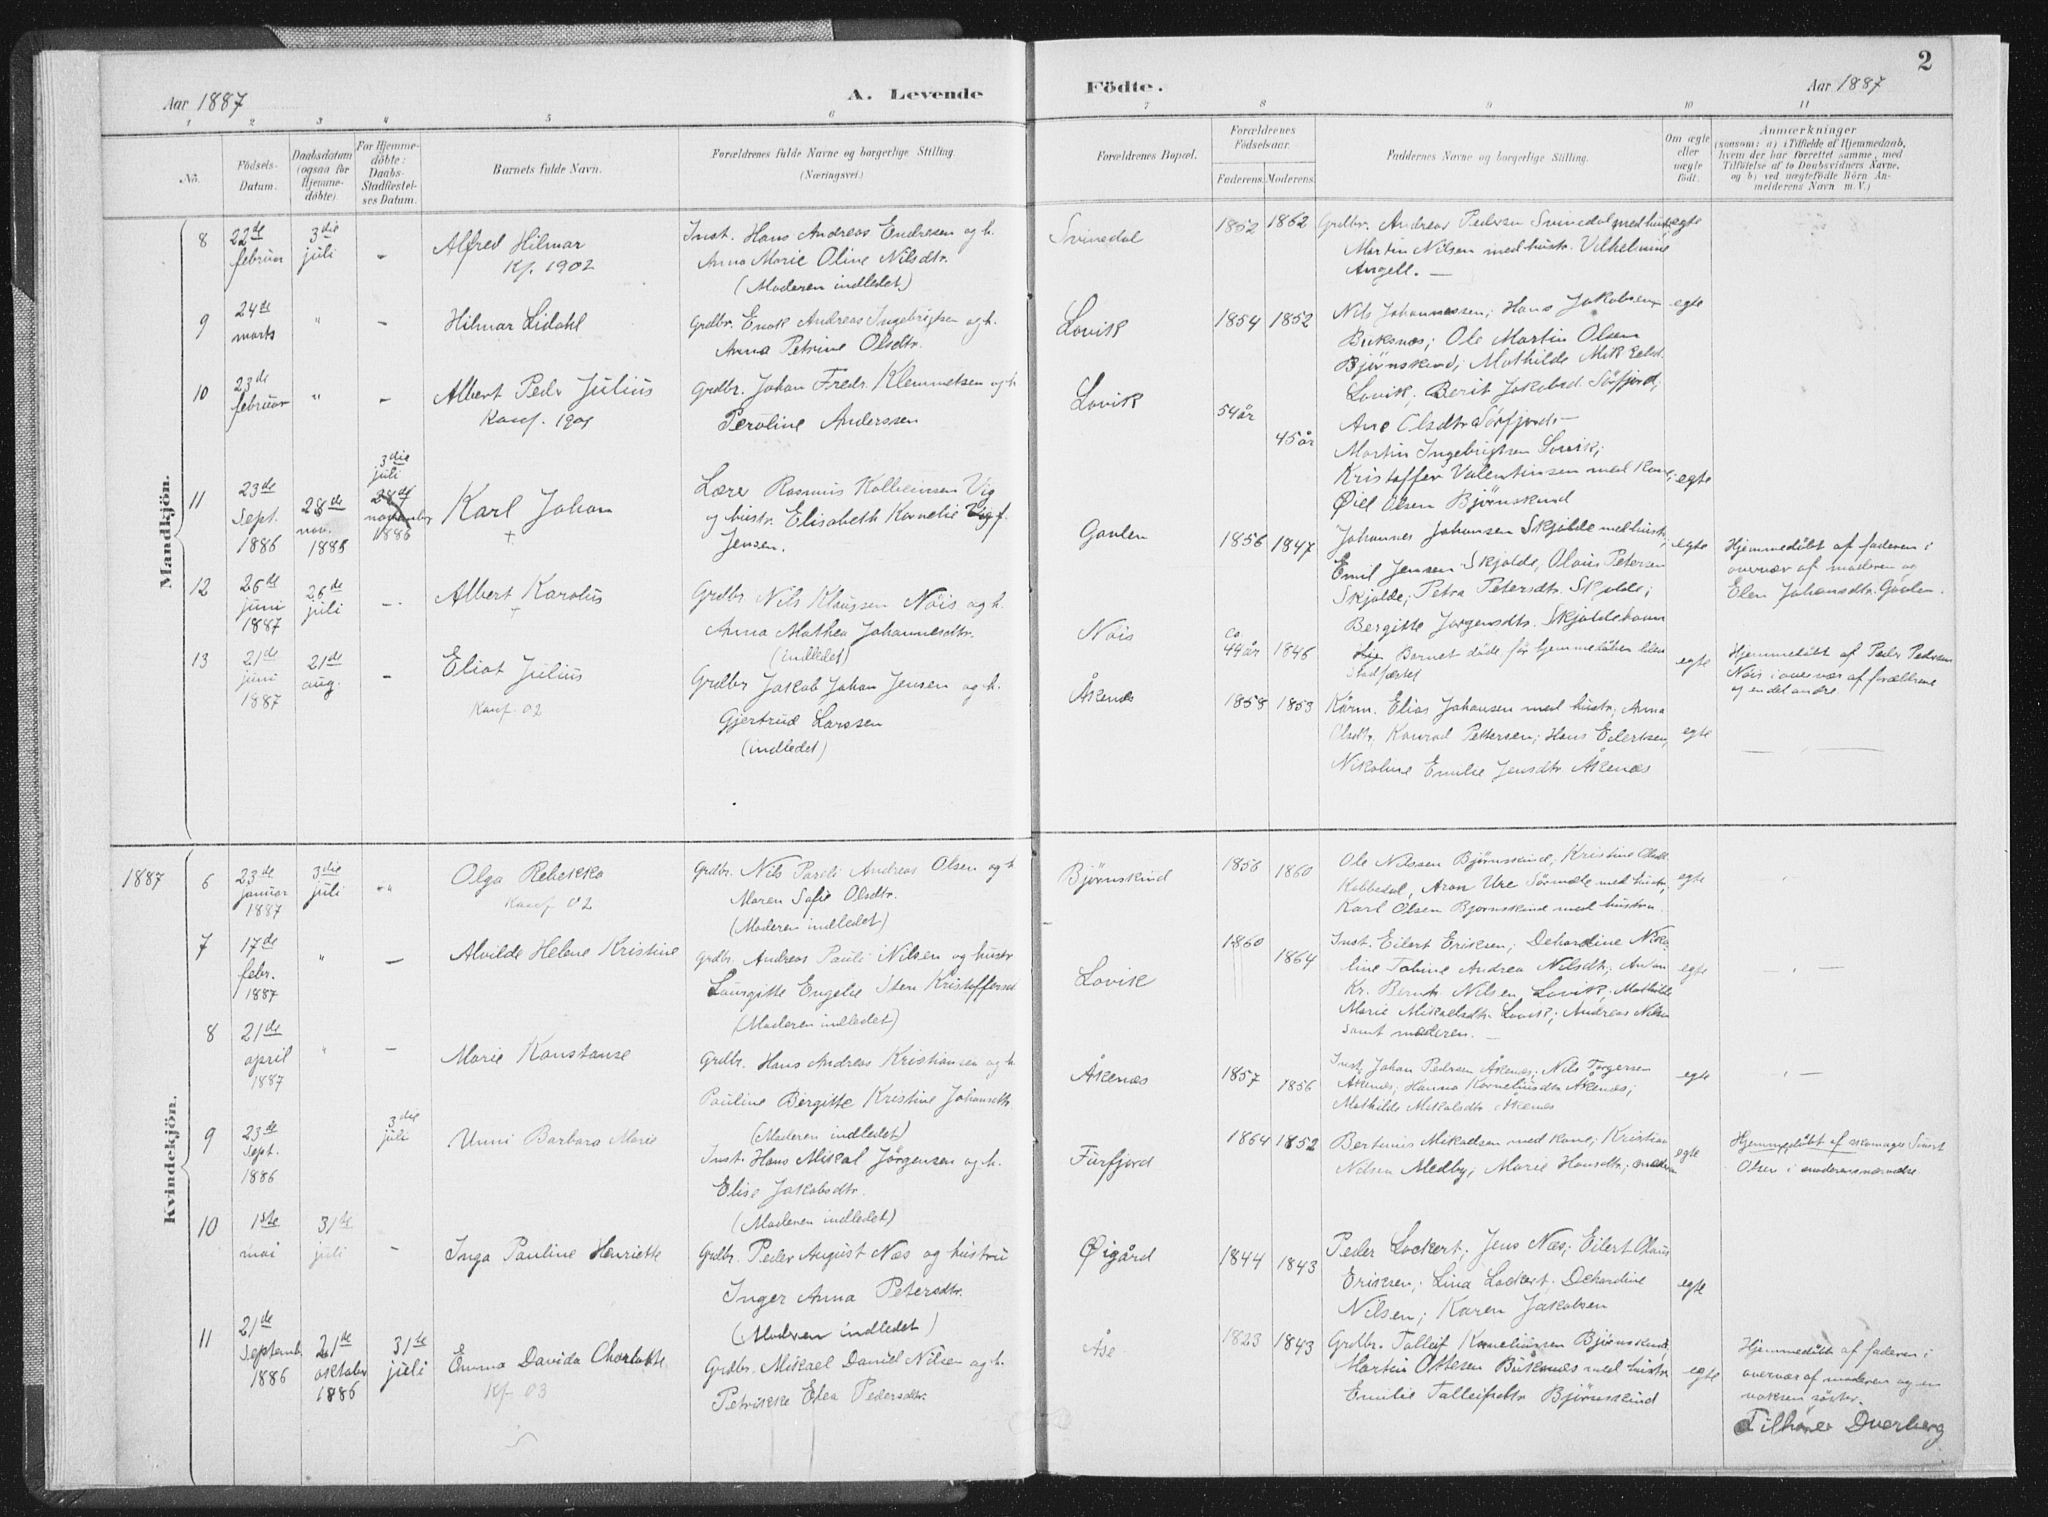 2
Aar 1887
A. Levende
Födte.
Aar 1887
1 2 3 4 5 6 7 8 9 10 11
No.
Födsels-
Datum.
Daabsdatum
(ogsaa for
Hjemme-
döbte).
For Hjemme-
döbte:
Daabs-
Stadfæstel-
ses Datum.
Barnets fulde Navn.
Forældrenes fulde Navne og borgerlige Stilling.
(Næringsvei.)
Forældrenes Bopæl.
Forældrenes
Födselsaar.
Faderens. Moderens.
Faddernes Navne og borgerlige Stilling.
Om ægte
eller
uægte
födt.
Anmærkninger
(saasom: a) i Tilfælde af Hjemmedaab,
hvem der har forrettet samme, med
Tilföielse af to Daabsvidners Navne,
og b) ved uægtefödte Börn An-
melderens Navn m. V.)
Mandkjön.
8
22de
februar
3die
juli
-
Alfred Hilmar
Kf. 1902
Inst. Hans Andreas Endresen og h.
Anna Marie Oline Nilsdtr.
(Moderen indledet)
Svinedal
1852 1862
Grdbr. Andreas Pedersen Svinedal med hustr.
Martin Nilsen med hustr. Vilhelmine
Angell. —
egte
9
24de
marts
"
-
Hilmar Lidahl
Grdbr. Enok Andreas Ingebrigtsen og h.
Anna Petrine Olsdtr.
Lovik
1854 1852
Nils Johannessen; Hans Jakobsen
Buksnæs; Ole Martin Olsen
Bjørnskind; Mathilde
Lovik. Berit Jakobsd. Sørfjord;
egte
10
23de
februar
"
-
Albert Peder Julius
Konf. 1901
Grdbr. Johan Fredr. Klemmetsen og h.
Peroline Anderssen
Lovik
54 år
45 år
Ane Olsdtr. Sørfjord —
Martin Ingebrigtsen Lovik;
Kristoffer Valentinsen med kone;
Olsen Bjørnskind
egte
11
23de
Sept.
1886
28de
nov.
1886
3die
juli
28de
november
1886
Karl Johan
+
Lærer Rasmus Kolbeinsen Vig
og hustr. Elisabeth Kornelie Vig f.
Jensen.
Gavlen
1856 1847
Johannes Johansen Skjolde med hustr.;
Emil Jensen Skjolde, Olaus Petersen
Skjolde; Petra Petersdtr. Skjolde;
Bergitte Jørgensdtr. Skjoldehavn
egte
Hjemmedöbt af faderen i
overvær af moderen og
Elen Johansdtr. Gavlen.
12
26de
juni
1887
26de
juli
-
Albert Karolus
+
Grdbr. Nils Klaussen Nöis og h.
Anna Mathea Johannesdtr.
(indledet)
Nöis
ca.
44 år 1846
Barnet döde för hjemmedåben blev
stadfæstet
egte
Hjemmedöbt af Peder Pedersen
Nöis i overvær af forældrene
og en del andre
13
21de
juni
1887
21de
aug.
-
Eliot Julius
Konf. 02
Grdbr. Jakob Johan Jensen og h.
Gjertrud Larssen
(indledet)
Åkenæs
1858 1853
Elias Johansen med hustr.; Anna
Olsdtr. Konrad Pettersen; Hans Eilertsen,
Nikoline Emilie Jensdtr. Åkenæs
egte
Kvindekjön.
1887
6
23de
januar
1887
3die
juli
"
Olga Rebekka
Konf 02
Grdbr. Nils Pareli Andreas Olsen og h.
Maren Sofie Olsdtr.
(Moderen indledet)
Bjørnskind
1856 1860
Ole Nilssen Bjørnskind; Kristine Olsdtr.
Kobbedal, Aron Ure Sörmæle med hustr,
Karl Olsen Bjørnskind med hustru.
egte
7
17de
febr.
1887
"
—
Alvilde Helene Kristine
Grdbr. Andreas Pauli Nilsen og hustr
Laurgitte Engelie Iten Kristoffersen
(Moderen indledet)
Lovik
1860 1864
Inst. Eilert Eriksen; Dehardine Niko-
line Tobine Andrea Nilsdtr.; Anton
Kr. Bernt Nilsen Lovik; Mathilde
Marie Mikaelsdtr. Lovik; Andreas Nilsen
samt moderen. —
egte
8
21de
april
1887
"
-
Marie Konstanse
Grdbr. Hans Andreas Kristiansen og h.
Pauline Bergitte Kristine Johansdtr.
(Moderen indledet)
Åkenæs
1857 1856
Inst. Johan Pedersen Åkenæs; Nils Torgersen
Åkenæs; Hanna Korneliusdtr. Åkenæs;
Mathilde Mikalsdtr. Åkenæs
egte
9
23de
Sept.
1886
3die
juli
Unni Barbara Marie
Inst. Hans Mikal Jørgensen og h.
Elise Jakobsdtr.
(Moderen indledet)
Furfjord
1864 1852
Bertinus Mikalsen med kone; Kristian
Nilsen Medby; Marie Hansdtr.; moderen
egte
Hjemmedöbt af skomager
Olsen i moderens nærværelse
10
1ste
mai
31te
juli
-
Inga Pauline Henriette
Grdbr. Peder August Næs og hustru
Inger Anna Petersdtr.
(Moderen indledet)
Øigård
1844 1843
Peder Lockert; Jens Næs; Eilert Olaus
Eriksen; Lina Lockert; Dehardine
Nilsen; Karen Jakobsen
egte
11
21de
Septemb.
1886
21de
oktober
1886
31te
juli
Emma Davida Charlotte
Kf. 03
Grdbr. Mikael Daniel Nilsen og h.
Petrikke Elea Pedersdtr.
Åse
1823 1843
Grdbr. Tolleif Korneliussen Bjørnskind,
Martin Ottesen Buksnæs med hustr
Emilie Tolleifsdtr Bjørnskind
egte
Hjemmedöbt af faderen i
overvær af moderen og en
voksen søster.
Tilhörer Dverberg